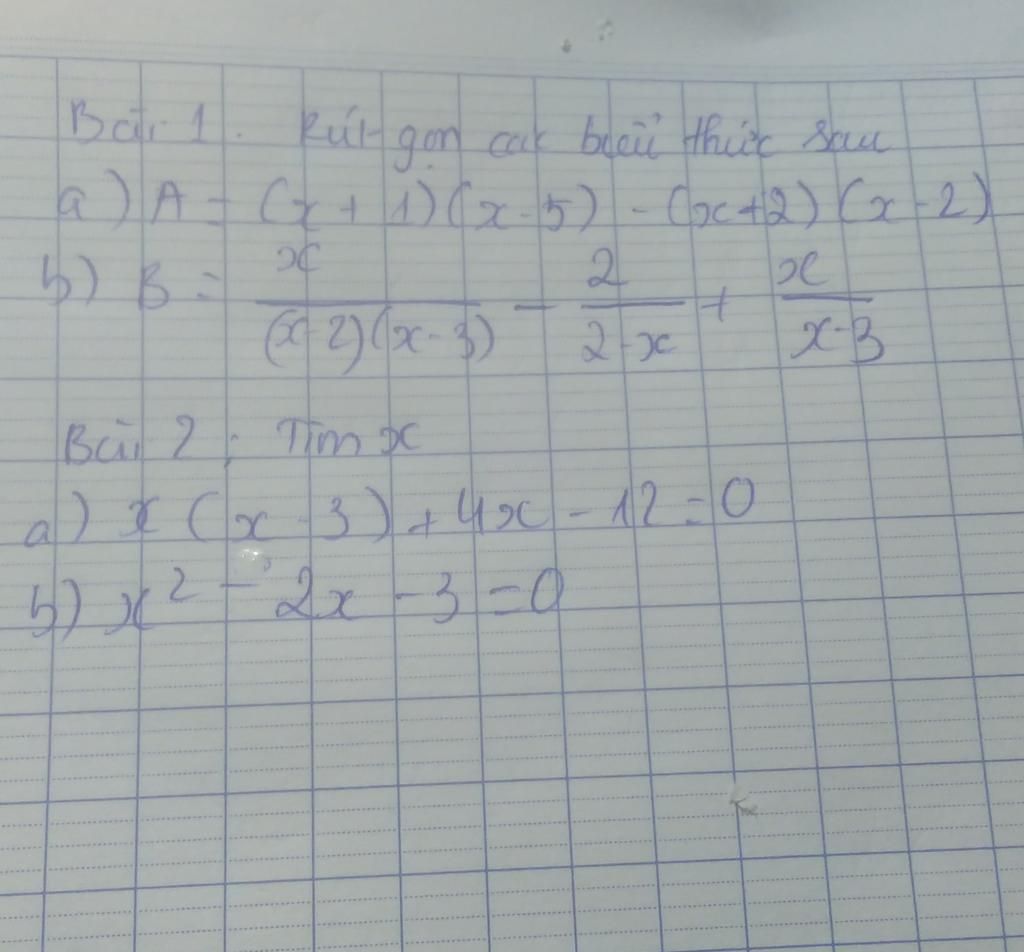 Bài 1. Rút gọn các biểu thức sau
a) A = (x + 1)(x - 5) - (x + 2)(x - 2)
b) B = x/((x - 2)(x - 3)) - 2/(2 - x) + x/(x - 3)
Bài 2: Tìm x
a) x(x - 3) + 4x - 12 = 0
b) x² - 2x - 3 = 0